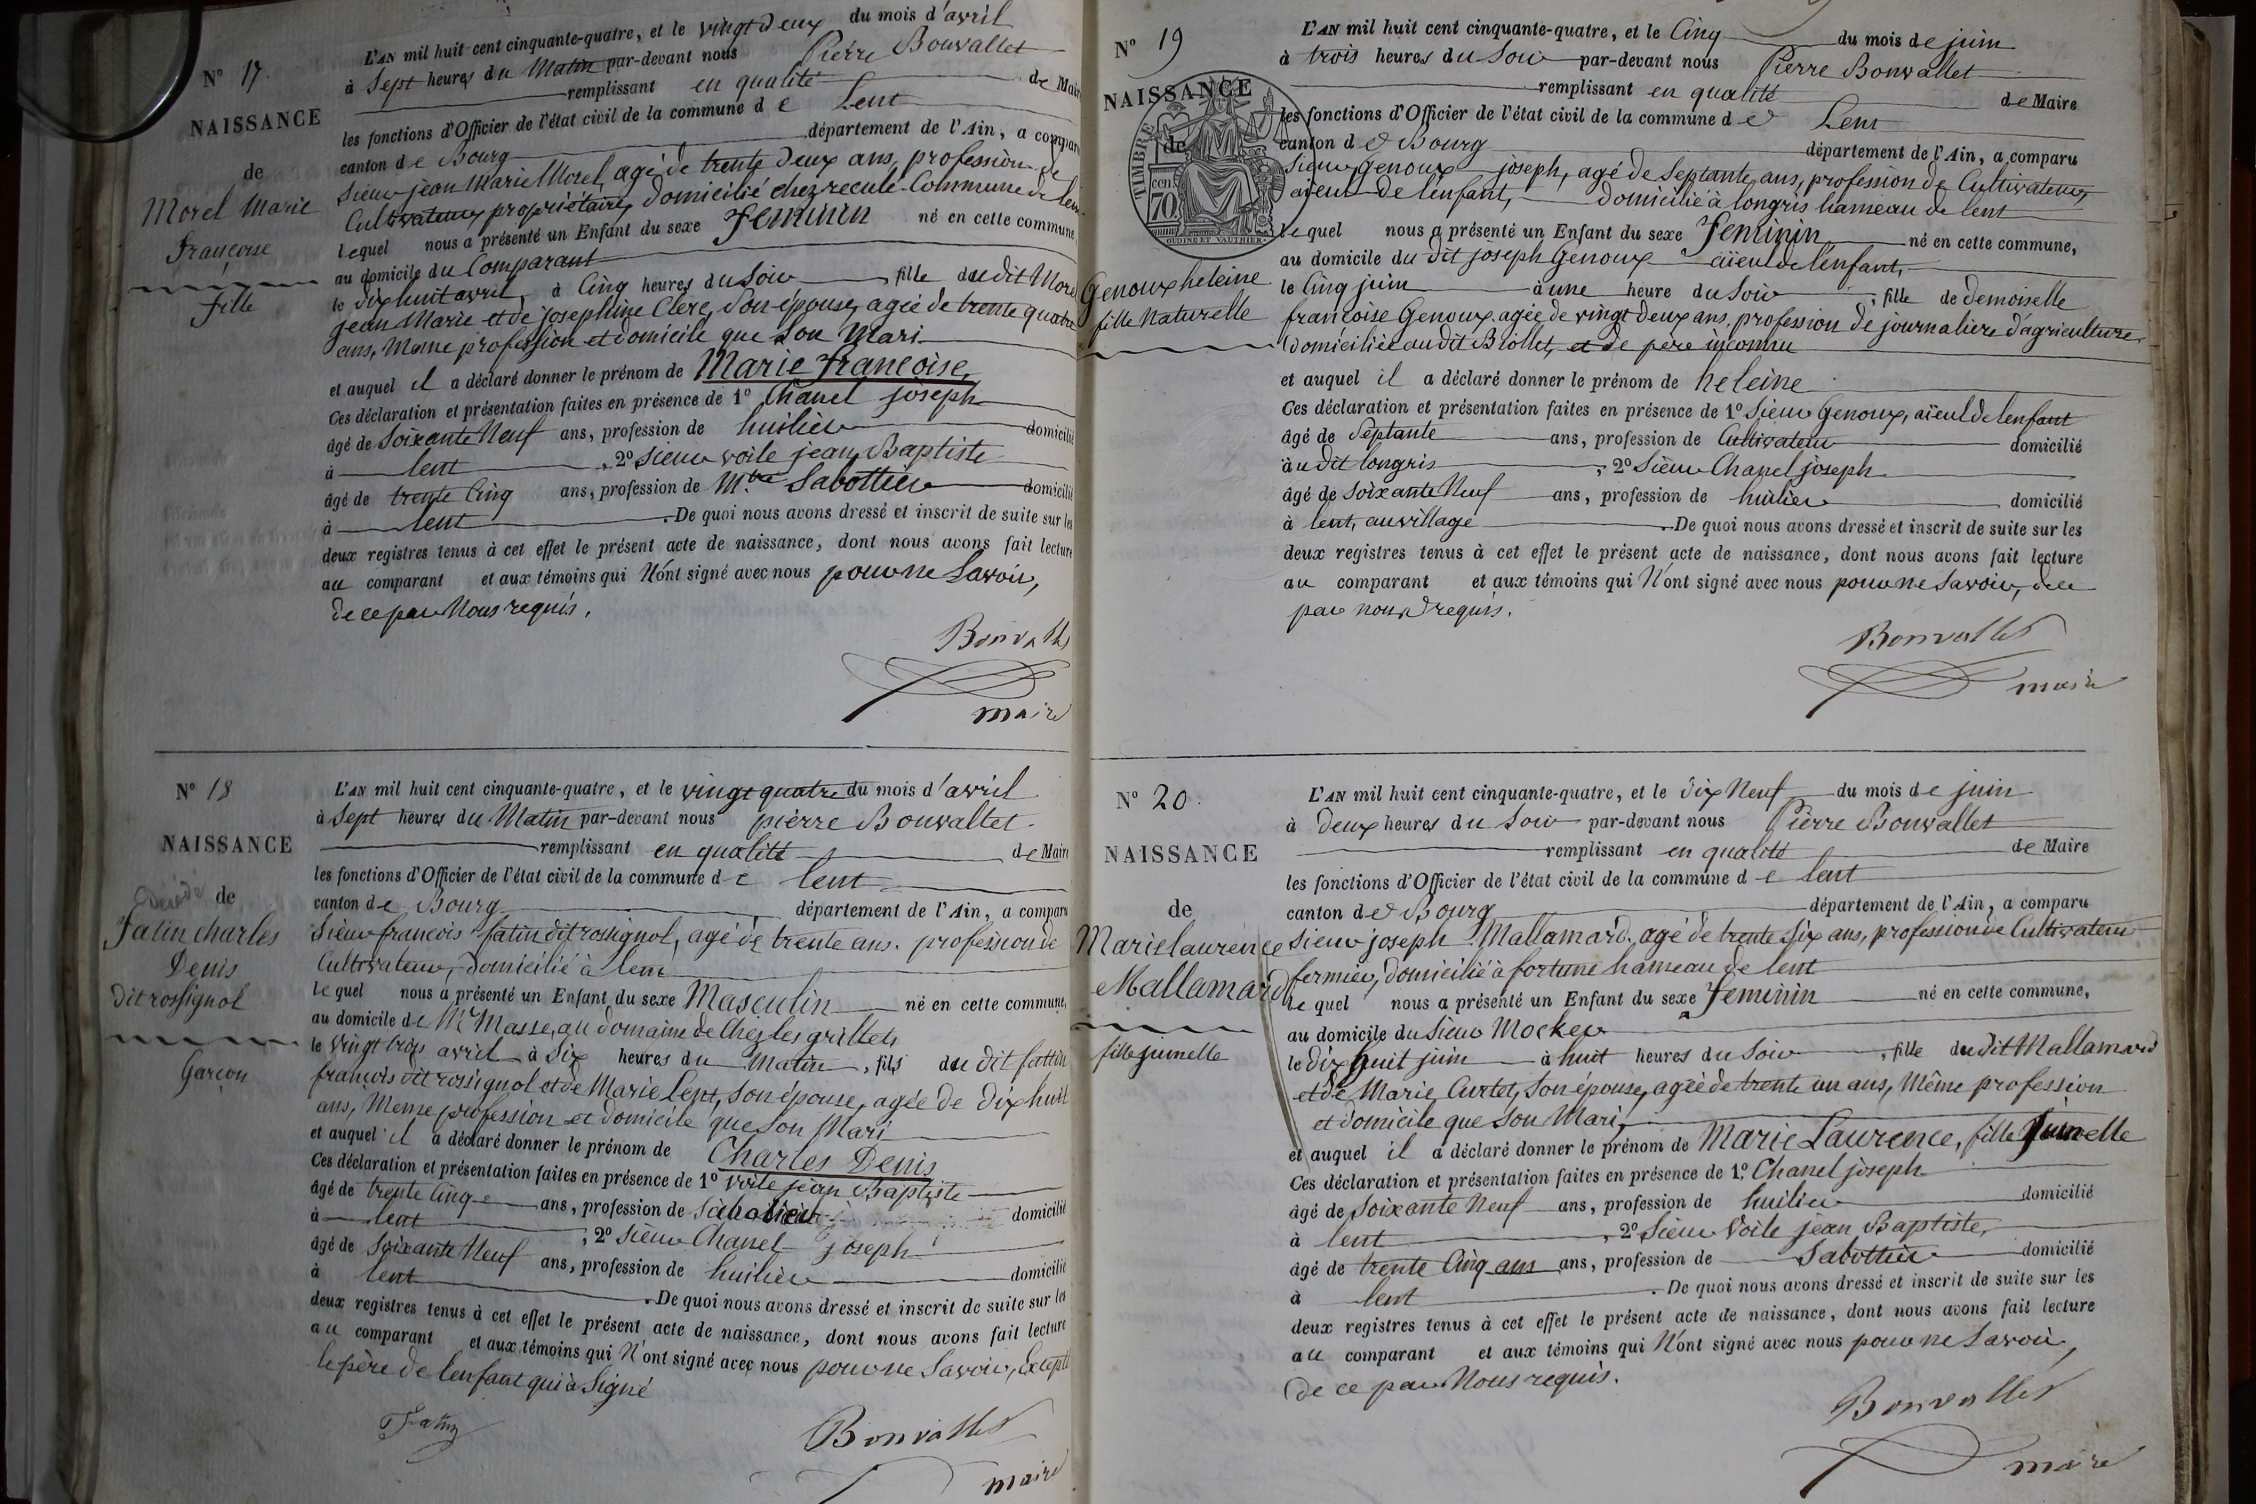 N° 17.
NAISSANCE
de
Morel Marie
françoise
fille
L'AN mil huit cent cinquante-quatre, et le vingt deux du mois d'avril
à Sept heures du Matin par-devant nous Piérre Bonvallet
remplissant en qualité de Maire
les fonctions d'Officier de l'état civil de la commune de Lent
canton de Bourg département de l'Ain, a comparu
Sieur jean Marie Morel, agé de trente deux ans, profession de
Cultivateur propriétaire, domicilié chez reculé Commune de lent
lequel nous a présenté un Enfant du sexe feminin né en cette commune,
au domicile du Comparant
le dix huit avril, à Cinq heures du Soir fille du dit Morel
jean Marie et de josephine Clerc, Son épouse, agée de trente quatre
ans, Meme profession et domicile que Son Mari
et auquel il a déclaré donner le prénom de Marie françoise,
Ces déclaration et présentation faites en présence de 1° Chanel joseph
âgé de Soixante Neuf ans, profession de huilier domicilié
à lent , 2° Sieur voile jean Baptiste
âgé de trente Cinq ans, profession de M.tre Sabottier domicilié
à lent . De quoi nous avons dressé et inscrit de suite sur les
deux registres tenus à cet effet le présent acte de naissance, dont nous avons fait lecture
au comparant et aux témoins qui N'ont signé avec nous pour ne Savoir,
de ce par Nous requis.
Bonvallet
maire
N° 18
NAISSANCE
de
fatin charles
Denis
dit rossignol
Garçon
L'AN mil huit cent cinquante-quatre, et le vingt quatre du mois d'avril
à Sept heures du Matin par-devant nous pièrre Bonvallet
remplissant en qualité de Maire
les fonctions d'Officier de l'état civil de la commune de lent
canton de Bourg département de l'Ain, a comparu
Sieur francois fatin dit rossignol, agé de trente ans. profession de
Cultivateur, domicilié à lent
lequel nous a présenté un Enfant du sexe Masculin né en cette commune,
au domicile de Mr Masse, au domaine de Chez les grillets
le vingt trois avril à Six heures du Matin, fils du dit fattin
francois dit rossignol et de Marie lent, Son épouse, agée de dix huit
ans, Meme profession et domicile que Son Mari
et auquel il a déclaré donner le prénom de Charles Denis
Ces déclaration et présentation faites en présence de 1° voile jean Baptiste
âgé de trente cinq ans, profession de Sabotier domicilié
à lent ; 2° Sieur Chanel joseph
âgé de Soixante Neuf ans, profession de huilier domicilié
à lent . De quoi nous avons dressé et inscrit de suite sur les
deux registres tenus à cet effet le présent acte de naissance, dont nous avons fait lecture
au comparant et aux témoins qui N'ont signé avec nous pour ne Savoir, Excepté
le père de lenfant qui à Signé
Fatin
Bonvallet
maire
N° 19
NAISSANCE
de
TIMBRE
cen 70
OUDINE ET VAUTHIER
Genoux heleine
fille Naturelle
L'AN mil huit cent cinquante-quatre, et le Cinq du mois de juin
à trois heures du Soir par-devant nous Pierre Bonvallet
remplissant en qualité de Maire
les fonctions d'Officier de l'état civil de la commune de Lent
canton de Bourg département de l'Ain, a comparu
Sieur Genoux joseph, agé de Septante ans, profession de Cultivateur,
aieul de lenfant, domicilié à longris hameau de lent
lequel nous a présenté un Enfant du sexe feminin né en cette commune,
au domicile du dit joseph Genoux aïeul de lenfant,
le Cinq juin à une heure du Soir , fille de demoiselle
francoise Genoux agée de vingt deux ans, profession de journalière d'agriculture
domiciliée au dit Biollet, et de père inconnu
et auquel il a déclaré donner le prénom de heleine
Ces déclaration et présentation faites en présence de 1° Sieur Genoux, aïeul de lenfant
âgé de Septante ans, profession de Cultivateur domicilié
àu dit longris ; 2° Sieur Chanel joseph
âgé de Soixante Neuf ans, profession de huilier domicilié
à lent, au village . De quoi nous avons dressé et inscrit de suite sur les
deux registres tenus à cet effet le présent acte de naissance, dont nous avons fait lecture
au comparant et aux témoins qui N'ont signé avec nous pour ne Savoir, de ce
par nous requis.
Bonvallet
maire
N° 20.
NAISSANCE
de
Marie laurence
Mallamard
fille jumelle
L'AN mil huit cent cinquante-quatre, et le dix Neuf du mois de juin
à deux heures du Soir par-devant nous Pièrre Bonvallet
remplissant en qualité de Maire
les fonctions d'Officier de l'état civil de la commune de lent
canton de Bourg département de l'Ain, a comparu
Sieur joseph Mallamard, agé de trente Six ans, profession de Cultivateur
fermier, domicilié à fortune hameau de lent
lequel nous a présenté un Enfant du sexe feminin né en cette commune,
au domicile du Sieur Mocker
le dix huit juin à huit heures du Soir , fille du dit Mallamard
et de Marie Curtet, Son épouse, agée de trente un ans, Même profession
et domicile que Son Mari,
et auquel il a déclaré donner le prénom de Marie Laurence, fille Jumelle
Ces déclaration et présentation faites en présence de 1° Chanel joseph
âgé de Soixante Neuf ans, profession de huilier domicilié
à lent , 2° Sieur Voile jean Baptiste,
âgé de trente Cinq ans ans, profession de Sabottier domicilié
à lent . De quoi nous avons dressé et inscrit de suite sur les
deux registres tenus à cet effet le présent acte de naissance, dont nous avons fait lecture
au comparant et aux témoins qui N'ont signé avec nous pour ne Savoir,
de ce par Nous requis.
Bonvallet
maire